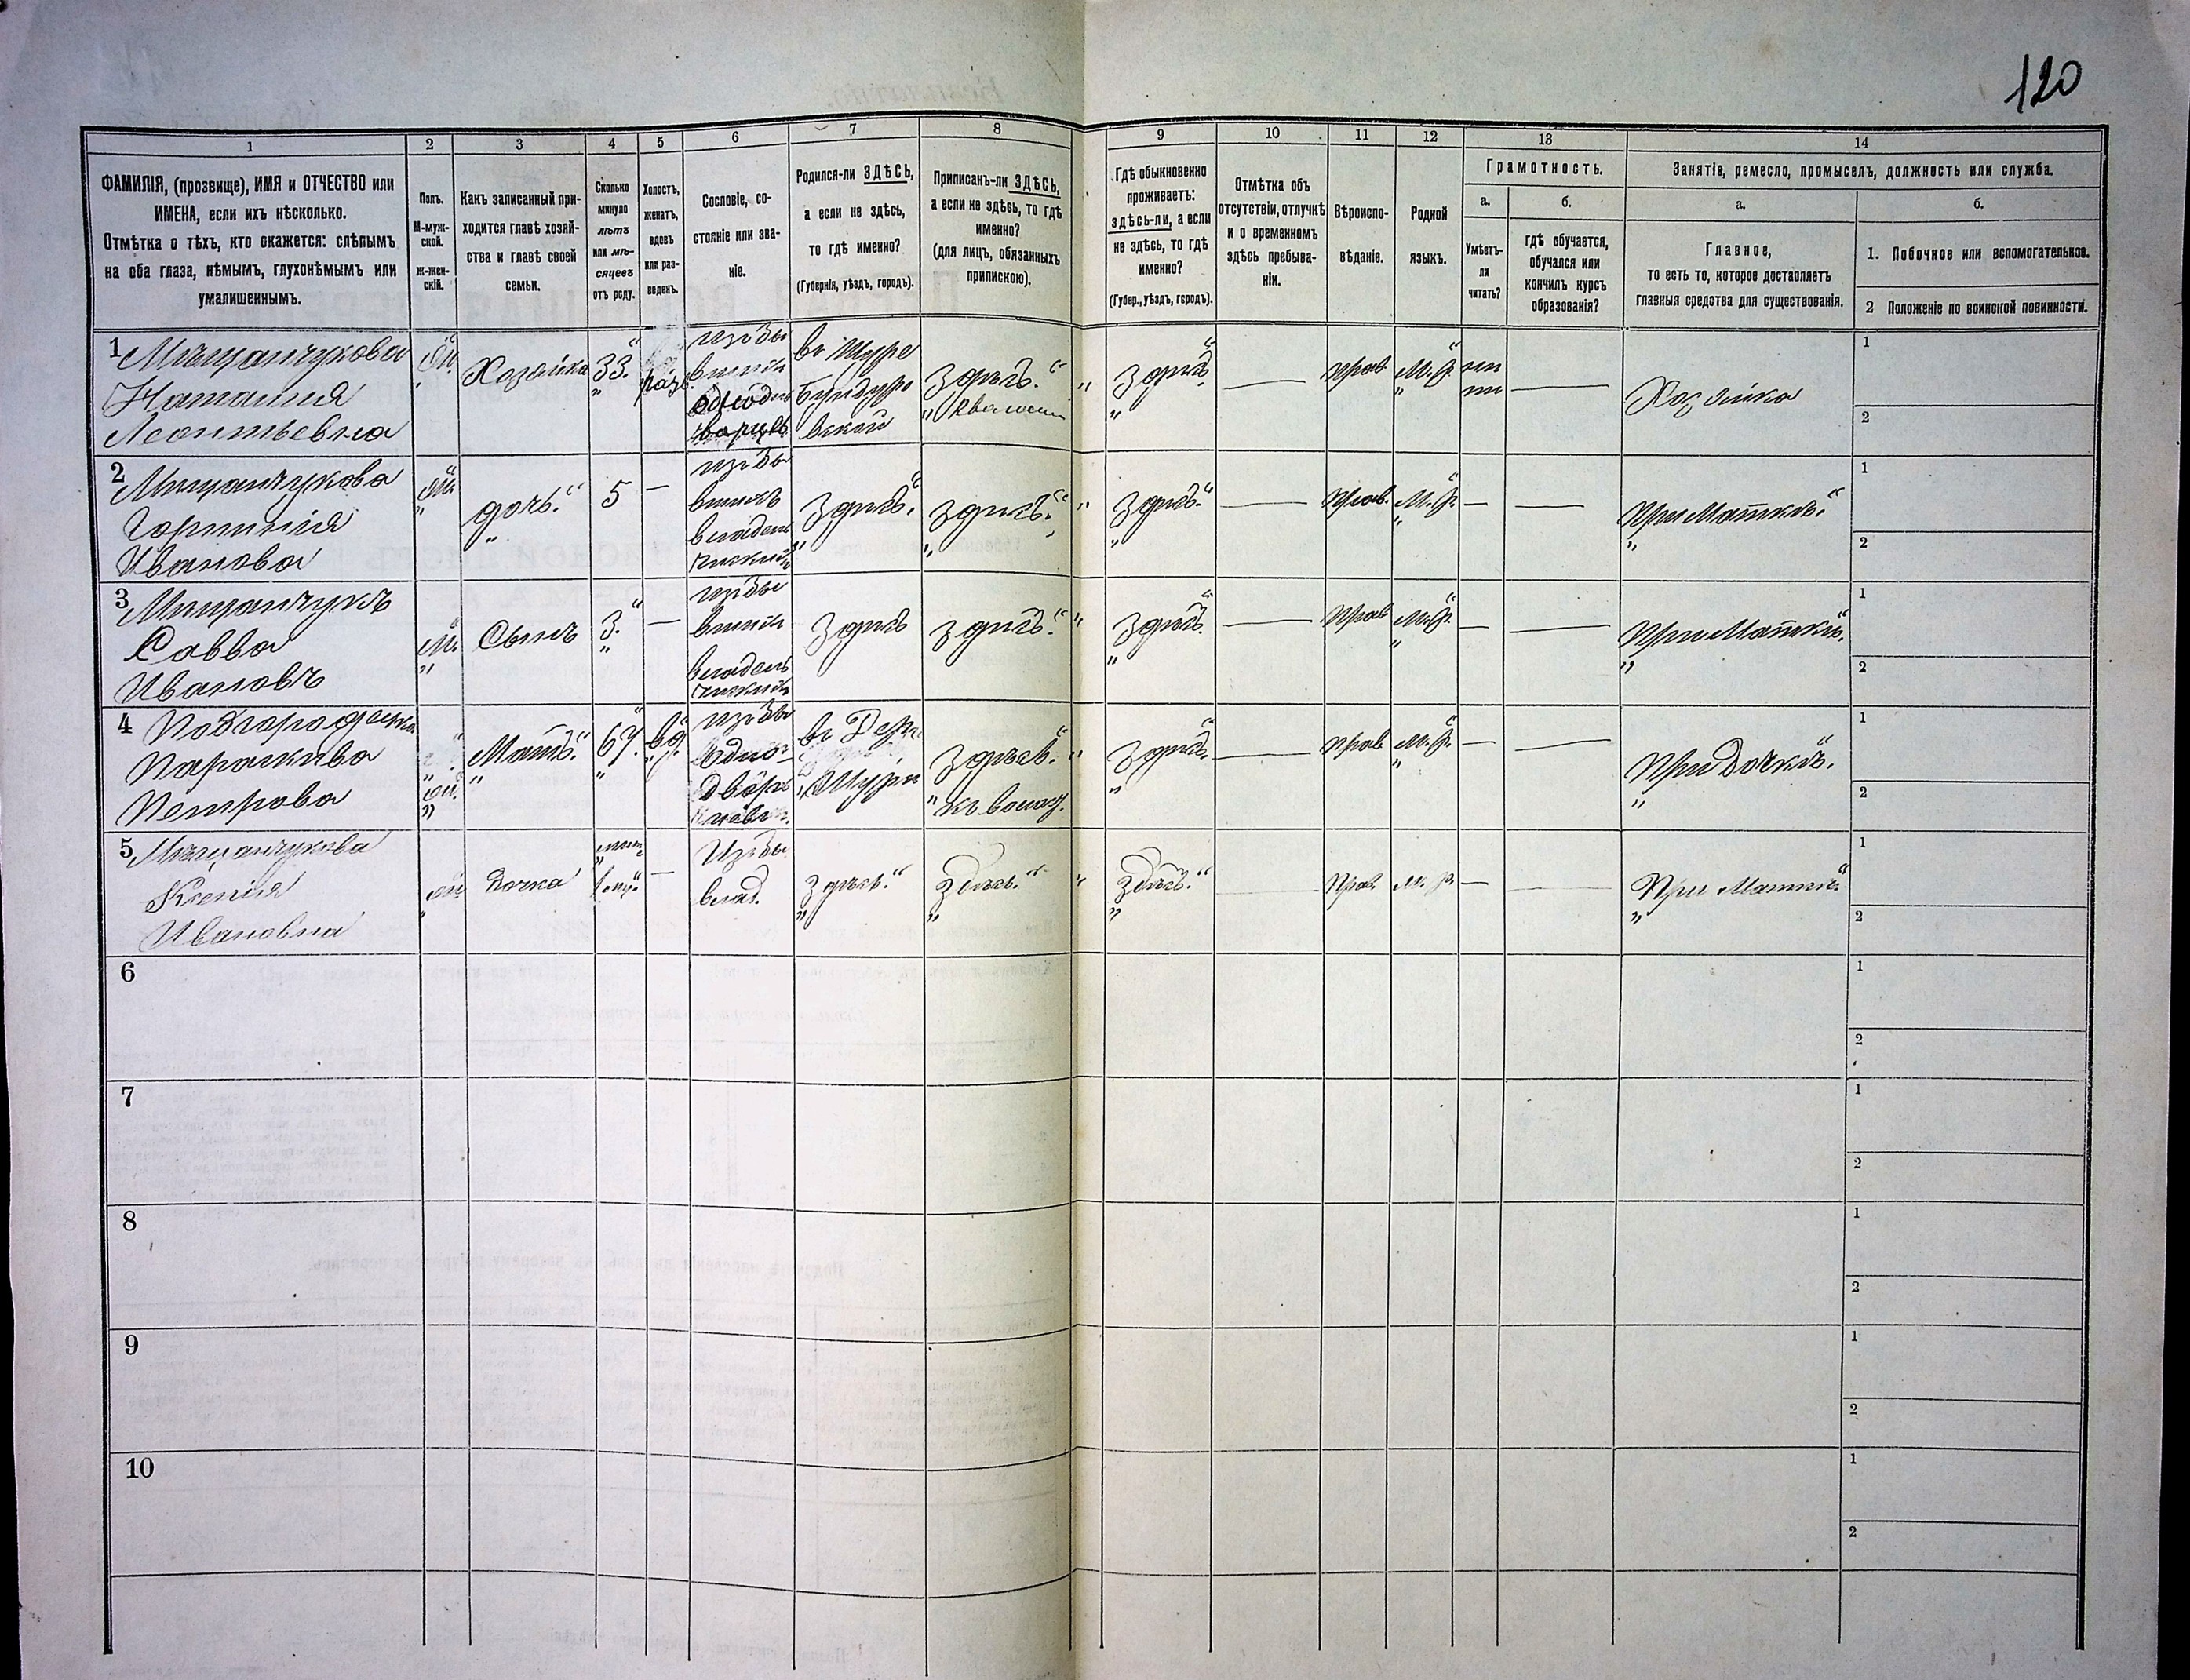 120
1 2 3 4 5 6 7 8 9 10 11 12 13 14
ФАМИЛІЯ, (прозвище), ИМЯ и ОТЧЕСТВО или
ИМЕНА, если ихъ нѣсколько.
Отмѣтка о тѣхъ, кто окажется: слѣпымъ
на оба глаза, нѣмымъ, глухонѣмымъ или
умалишеннымъ.
Полъ.
М-муж-
ской.
ж-жен-
скій.
Какъ записанный при-
ходится главѣ хозяй-
ства и главѣ своей
семьи.
Сколько
минуло
лѣтъ
или мѣ-
сяцевъ
отъ роду.
Холостъ,
женатъ,
вдовъ
или раз-
веденъ.
Сословіе, со-
стояніе или зва-
ніе.
Родился-ли ЗДѢСЬ,
а если не здѣсь,
то гдѣ именно?
(Губернія, уѣздъ, городъ).
Приписанъ-ли ЗДѢСЬ,
а если не здѣсь, то гдѣ
именно?
(для лицъ, обязанныхъ
припискою).
Гдѣ обыкновенно
проживаетъ:
здѣсь-ли, а если
не здѣсь, то гдѣ
именно?
(Губер., уѣздъ, городъ).
Отмѣтка объ
отсутствіи, отлучкѣ
и о временномъ
здѣсь пребыва-
ніи.
Вѣроиспо-
вѣданіе.
Родной
языкъ.
Грамотность.
а.
Умѣетъ-
ли
читать?
б.
гдѣ обучается,
обучался или
кончилъ курсъ
образованія?
Занятіе, ремесло, промыселъ, должность или служба.
а.
Главное,
то есть то, которое доставляетъ
главныя средства для существованія.
б.
1. Побочное или вспомогательное.
2 Положеніе по воинской повинности.
1 Мищанчукова
Наталия
Леонтьевна
Хозяйка
33.
здѣсь."
здѣсь
—
прав
М.р.
—
Хозяйка
1
2
2 Мищанчукова
Горпинія
Иванова
дочь."
5
—
здѣсь."
здѣсь."
здѣсь."
—
прав.
М.р.
—
—
При Маткѣ."
1
2
3 Мищанчукъ
Савва
Ивановъ
м.
Сынъ
3.
—
здѣсь
здѣсь."
здѣсь.
—
прав
М.р.
—
—
При Маткѣ.
1
2
4
Параскива
Петрова
Мать."
67.
вд.
здѣсь."
здѣсь.
—
прав
М.р.
—
—
При дочкѣ.
1
2
5 Мищанчукова
Ксенія
Ивановна
Дочка
—
влад.
здѣсь."
здѣсь."
здѣсь."
—
прав.
м. р.
—
—
При Маткѣ
1
2
6
1
2
7
1
2
8
1
2
9
1
2
10
1
2